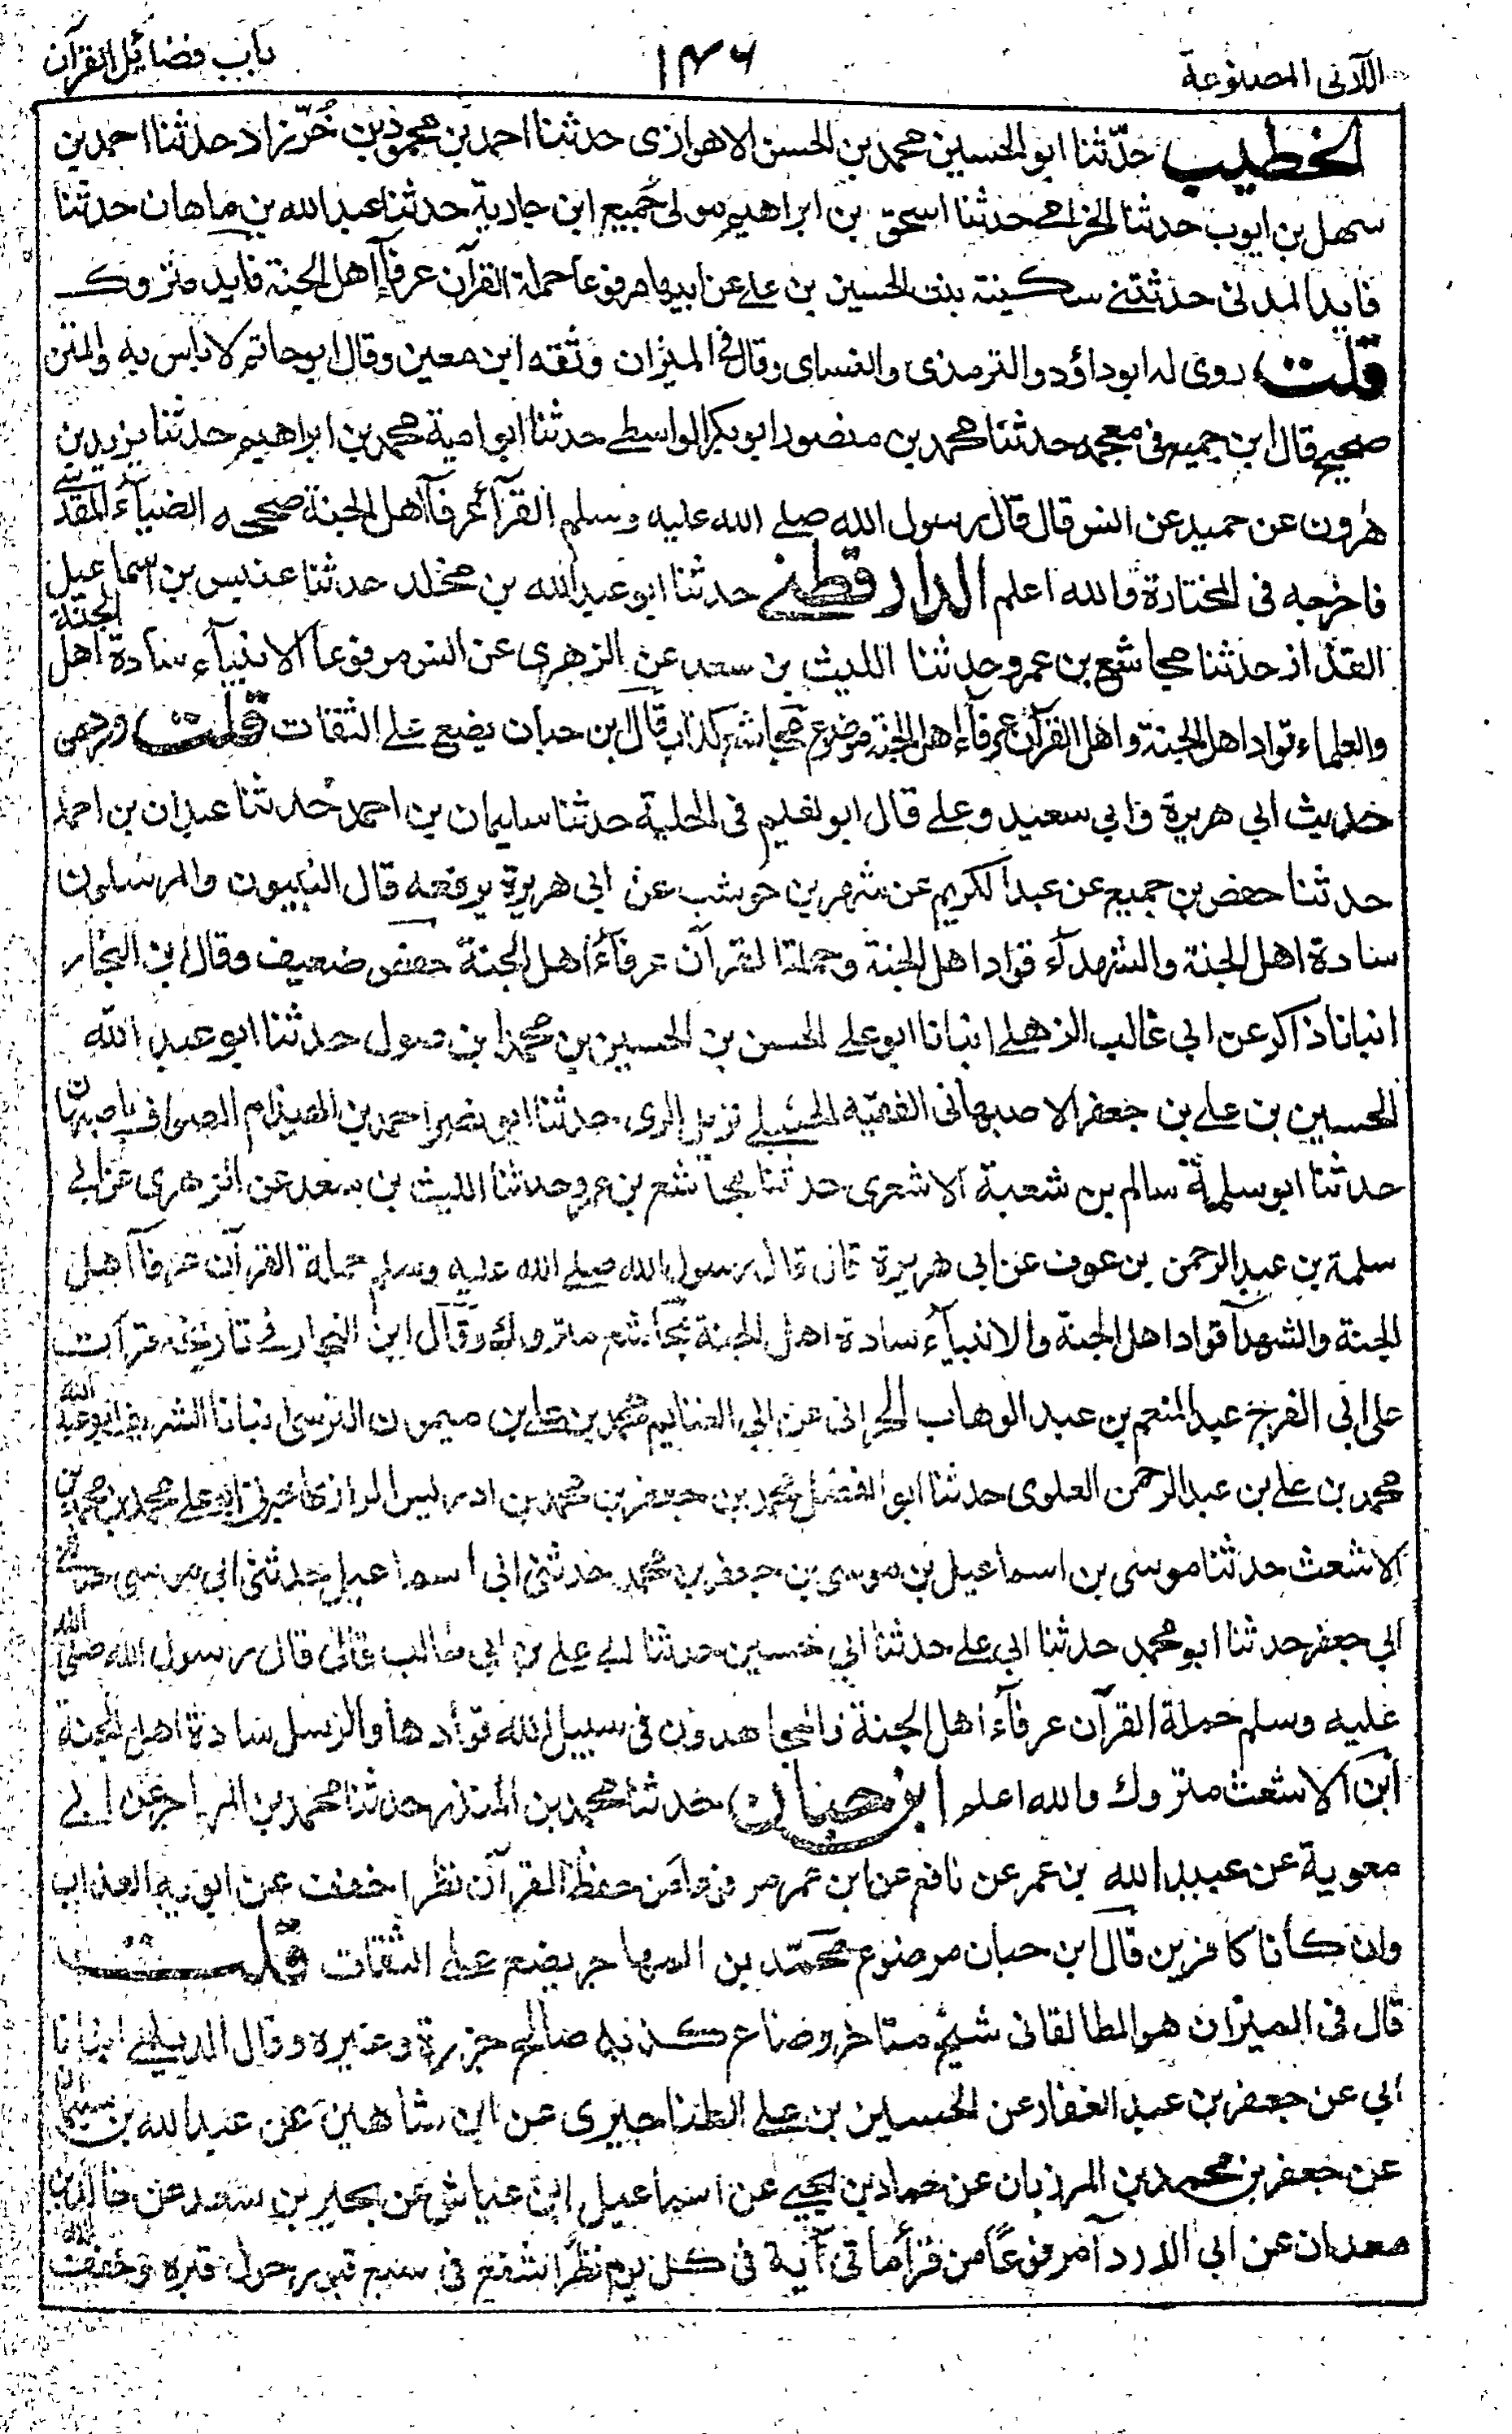 اللآلئ المصنوعة ١٣٦ باب فضائل القرآن
الخطيب حدّثنا ابو الحسين محمد بن الحسن الاهوازى حدثنا احمد بن محمود بن خُرّزاذ حدثنا احمد بن
سهل بن ايوب حدثنا الخزامى حدثنا اسحق بن ابراهيم مولى جميع ابن جارية حدثنا عبد الله بن ماهان حدثنا
فايد المدنى حدثتنے سكينة بنت الحسين بن علے عن ابيها مرفوعا حملة القرآن عرفآ اهل الجنة فايد متروك
قلت روى له ابو داؤد والترمذى والنساى وقال فے الميزان وثقه ابن معين وقال ابو حاتم لا باس به والمتن
صحيح قال ابن جميع فى معجمه حدثنا محمد بن منصور ابو بكر الواسطے حدثنا ابو امية محمد بن ابراهيم حدثنا يزيد بن
هٰرون عن حميد عن انس قال قال رسول الله صلے الله عليه وسلم القرآء عرفآ اهل الجنة صححه الضيآء المقدسے
فاخرجه فى المختارة والله اعلم الدارقطنے حدثنا ابو عبد الله بن مخلد حدثنا عنبس بن اسماعيل
القذاذ حدثنا مجاشع بن عمرو حدثنا الليث بن سعد عن الزهرى عن انس مرفوعا الانبيآء سادة اهل الجنة
والعلماء قواد اهل الجنة واهل القرآن عرفآء اهل الجنة موضوع مجاشع كذاب قال ابن حبان يضع علے الثقات قلت ورد من
حديث ابي هريرة وابي سعيد وعلے قال ابو نعيم فى الحلية حدثنا سليمان بن احمد حدثنا عبدان بن احمد
حدثنا حفص بن جميع عن عبد الكريم عن شهر بن حوشب عن ابي هريرة يرفعه قال النبيون والمرسلون
سادة اهل الجنة والشهدآء قواد اهل الجنة وحملة القرآن عرفآء اهل الجنة حفص ضعيف وقال ابن النجار
انبانا ذاكر عن ابي غالب الذهلے انبانا ابو علے الحسن بن الحسين بن محمد ابن صول حدثنا ابو عبد الله
الحسين بن علے بن جعفر الاصبهانى الفقيه الحنبلے نزيل الرى حدثنا ابو نصر احمد بن الصوافى باصبهان
حدثنا ابو سلمة سالم بن شعبة الاشعرى حدثنا مجاشع بن عمرو حدثنا الليث بن سعد عن الزهرى عن ابے
سلمة بن عبد الرحمن بن عوف عن ابي هريرة قال قال رسول الله صلے الله عليه وسلم حملة القرآن عرفآ اهل
الجنة والشهدآ قواد اهل الجنة والانبيآء سادة اهل الجنة مجاشع متروك وقال ابن النجار فے تاريخه قرآت
على ابى الفرج عبد المنعم بن عبد الوهاب الحرانى عن ابي الغنايم محمد بن علے بن ميمون النرسى انبانا الشريف ابو عبد الله
محمد بن علے بن عبد الرحمن العلوى حدثنا ابو الفضل محمد بن جعفر بن محمد بن ادريس الرازى اخبرنى ابو علے محمد بن محمد بن
الاشعث حدثنا موسى بن اسماعيل بن موسى بن جعفر بن محمد حدثنى ابى اسماعيل حدثنى ابى موسى حدثنے
ابي جعفر حدثنا ابو محمد حدثنا ابى على حدثنا ابي حسين حدثنا ابے علے بن ابي طالب قال قال رسول الله صلى الله
عليه وسلم حملة القرآن عرفآء اهل الجنة والمجاهدون فى سبيل الله قوادها والرسل سادة اهل الجنة
ابن الاشعث متروك والله اعلم ابن حبان حدثنا محمد بن المنذر حدثنا محمد بن المهاجر عن ابے
معوية عن عبيد الله بن عمر عن نافع عن ابن عمر مرفوعا من حفظ القرآن نظرا خفف عن ابويه العذاب
وان كانا كافرين قال ابن حبان موضوع محمد بن المهاجر يضع على الثقات قلت
قال فى الميزان هو الطالقانى شيخ متاخر وضاع كذبه صالح جزرة وغيره وقال الديلمے انبانا
ابي عن جعفر بن عبد الغفار عن الحسين بن علے الطناجيرى عن ابن شاهين عن عبد الله بن سليمان
عن جعفر بن محمد بن المرزبان عن حماد بن يحيے عن اسماعيل ابن عياش عن بحير بن سعد عن خالد بن
معدان عن ابى الدردآ مرفوعًا من قرأ ماتى آية فى كل يوم نظرًا شفع فى سبع قبور حول قبره وخفف الله